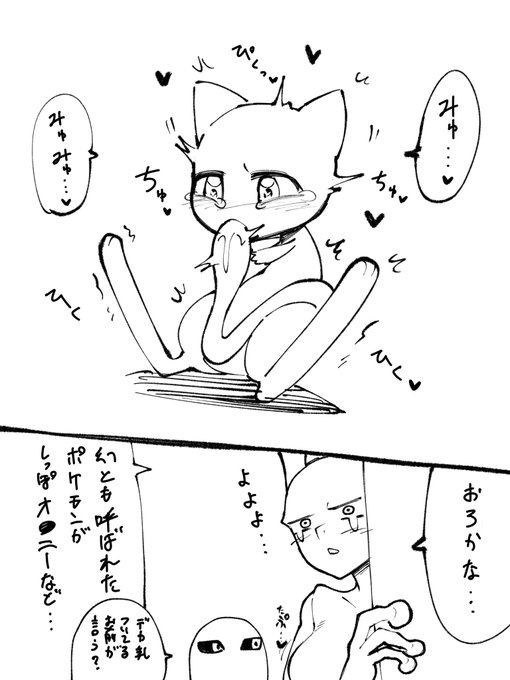 ぴくっ♥
みゅ…♥
みゅ
みゅ…♥
ちゅ♥
ちゅ♥
ひく
ひく♥
おろかな…
よよよ…
幻とも呼ばれた
ポケモンが
しっぽオ●ニーなど…
たぷ…♥
デカ乳
ついてる
お前が
言う?